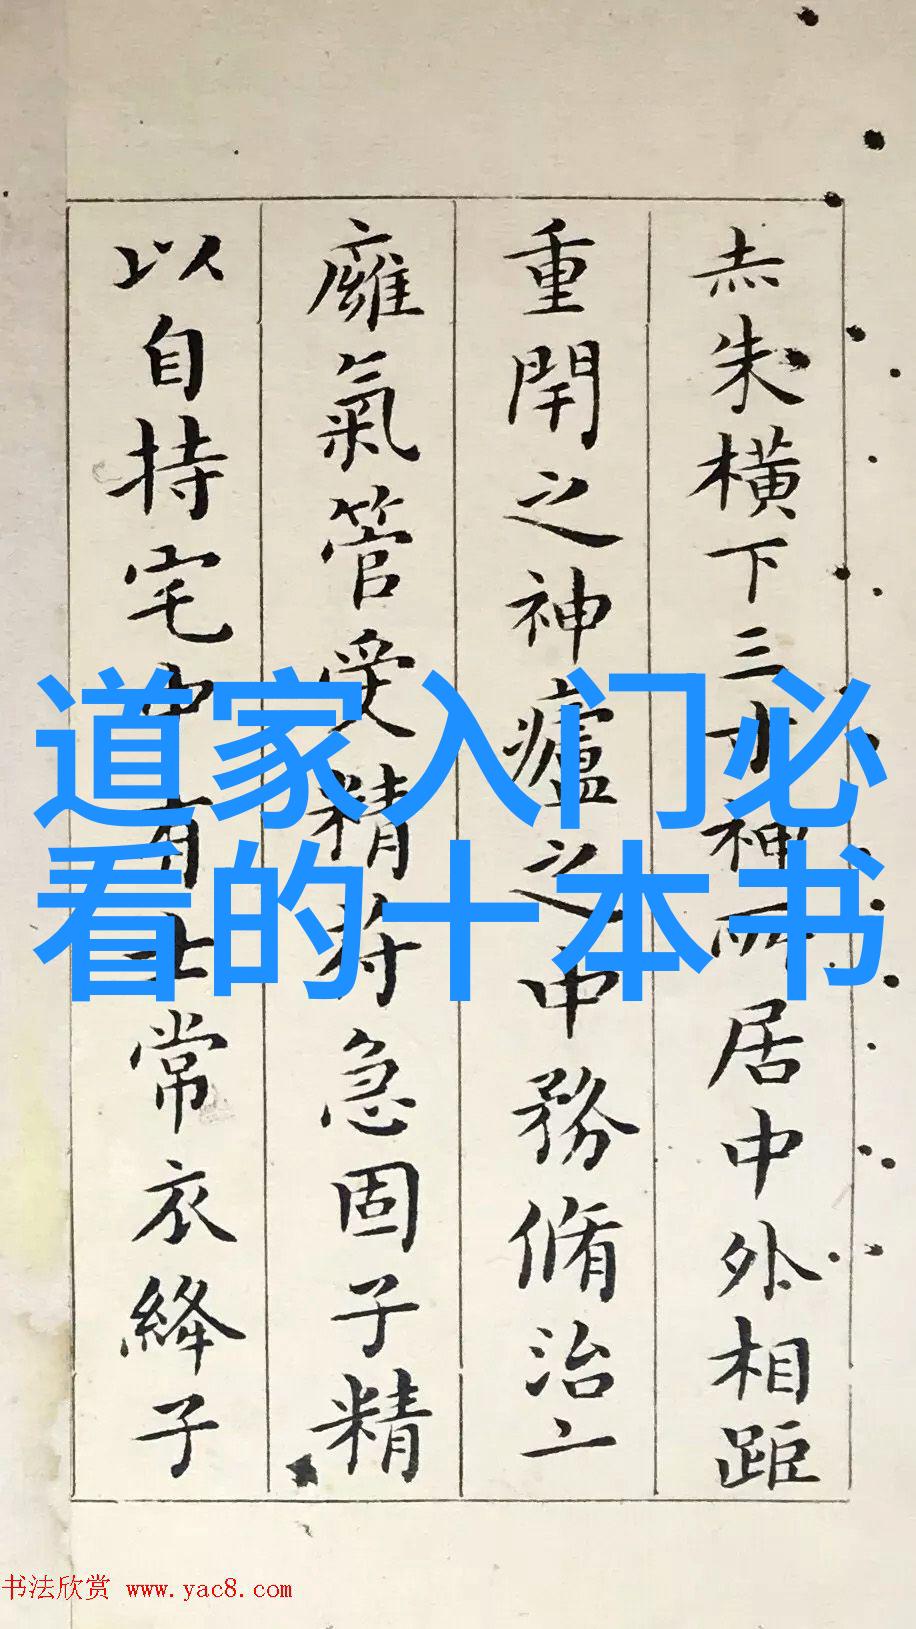 道家入门必
看的十本书
赤朱橫下三寸神所居中外相距
重閇之神廬之中務脩治一
癰氣管受精符急固子精
以自持宅中有士常衣絳子
书法欣赏 www.yac8.com